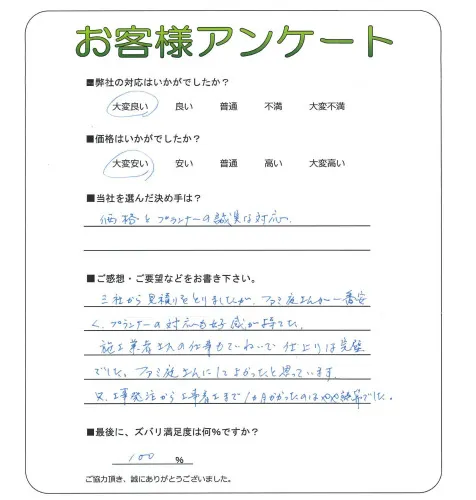 お客様アンケート
■弊社の対応はいかがでしたか？
大変良い 良い 普通 不満 大変不満
■価格はいかがでしたか？
大変安い 安い 普通 高い 大変高い
■当社を選んだ決め手は？
価格とプランナーの誠実な対応。
■ご感想・ご要望などをお書き下さい。
三社から見積りをとりましたが、ファミ庭さんが一番安
く、プランナーの対応も好感が持てた。
施工業者さんの仕事もていねいで仕上りは完璧
でした。ファミ庭さんにしてよかったと思っています。
又、工事発注から工事着工まで1ヵ月かかったのはやや
■最後に、ズバリ満足度は何%ですか？
100 %
ご協力頂き、誠にありがとうございました。